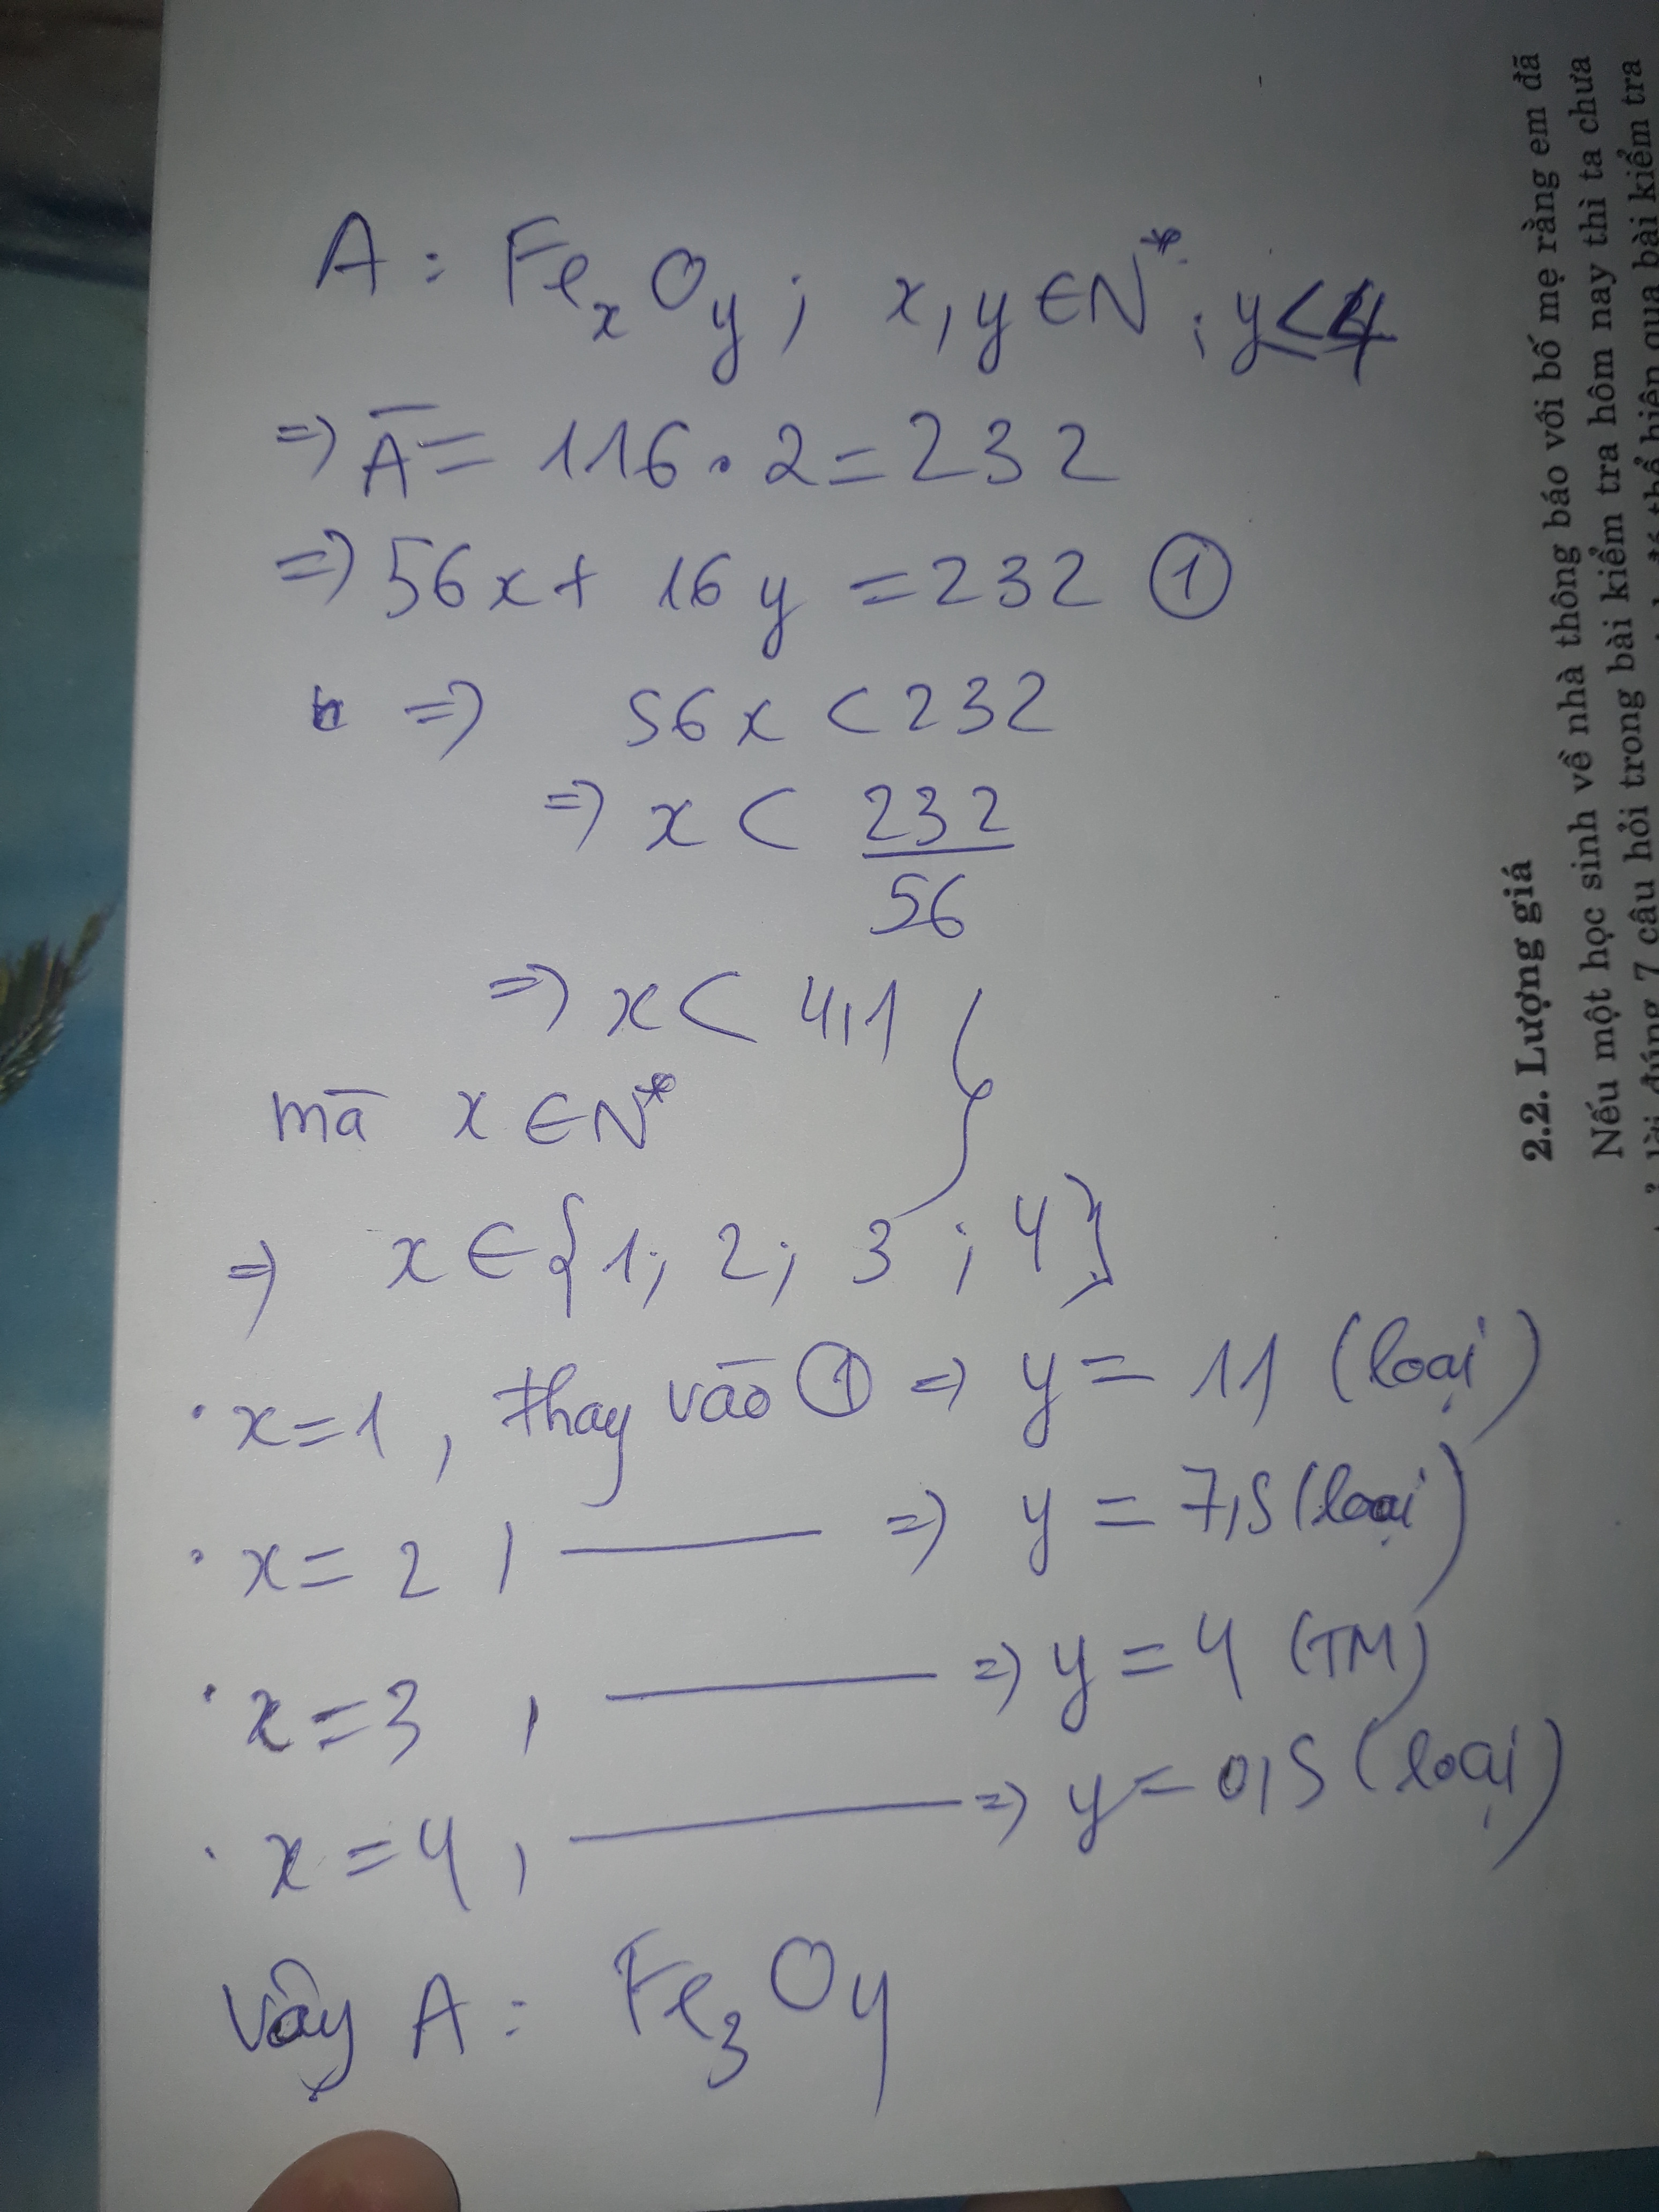 A : FexOy ; x, y ∈ N* ; y ≤ 4
=> A̅ = 116 . 2 = 232
=> 56x + 16y = 232 ①
=> 56x < 232
=> x < 232/56
=> x < 4,1
mà x ∈ N*
=> x ∈ {1; 2; 3; 4}
· x = 1, thay vào ① => y = 11 (loại)
· x = 2, —— => y = 7,5 (loại)
· x = 3, —— => y = 4 (TM)
· x = 4, —— => y = 0,5 (loại)
Vậy A : Fe3O4
2.2. Lượng giá
Nếu một học sinh về nhà thông báo với bố mẹ rằng em đã
lời đúng 7 câu hỏi trong bài kiểm tra hôm nay thì ta chưa
thể hiện qua bài kiểm tra